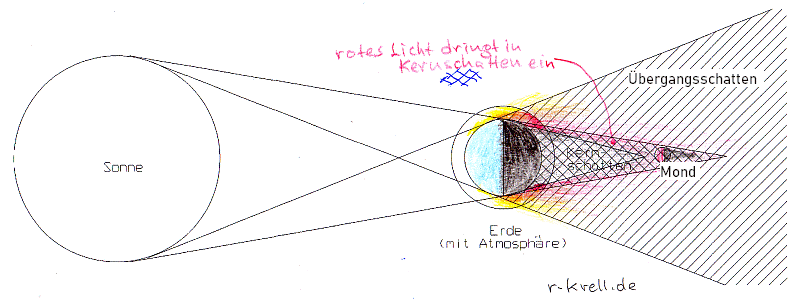 rotes Licht dringt in
Kernschatten ein
Übergangsschatten
Sonne
Kern-
schatten
Mond
Erde
(mit Atmosphäre)
r-krell.de